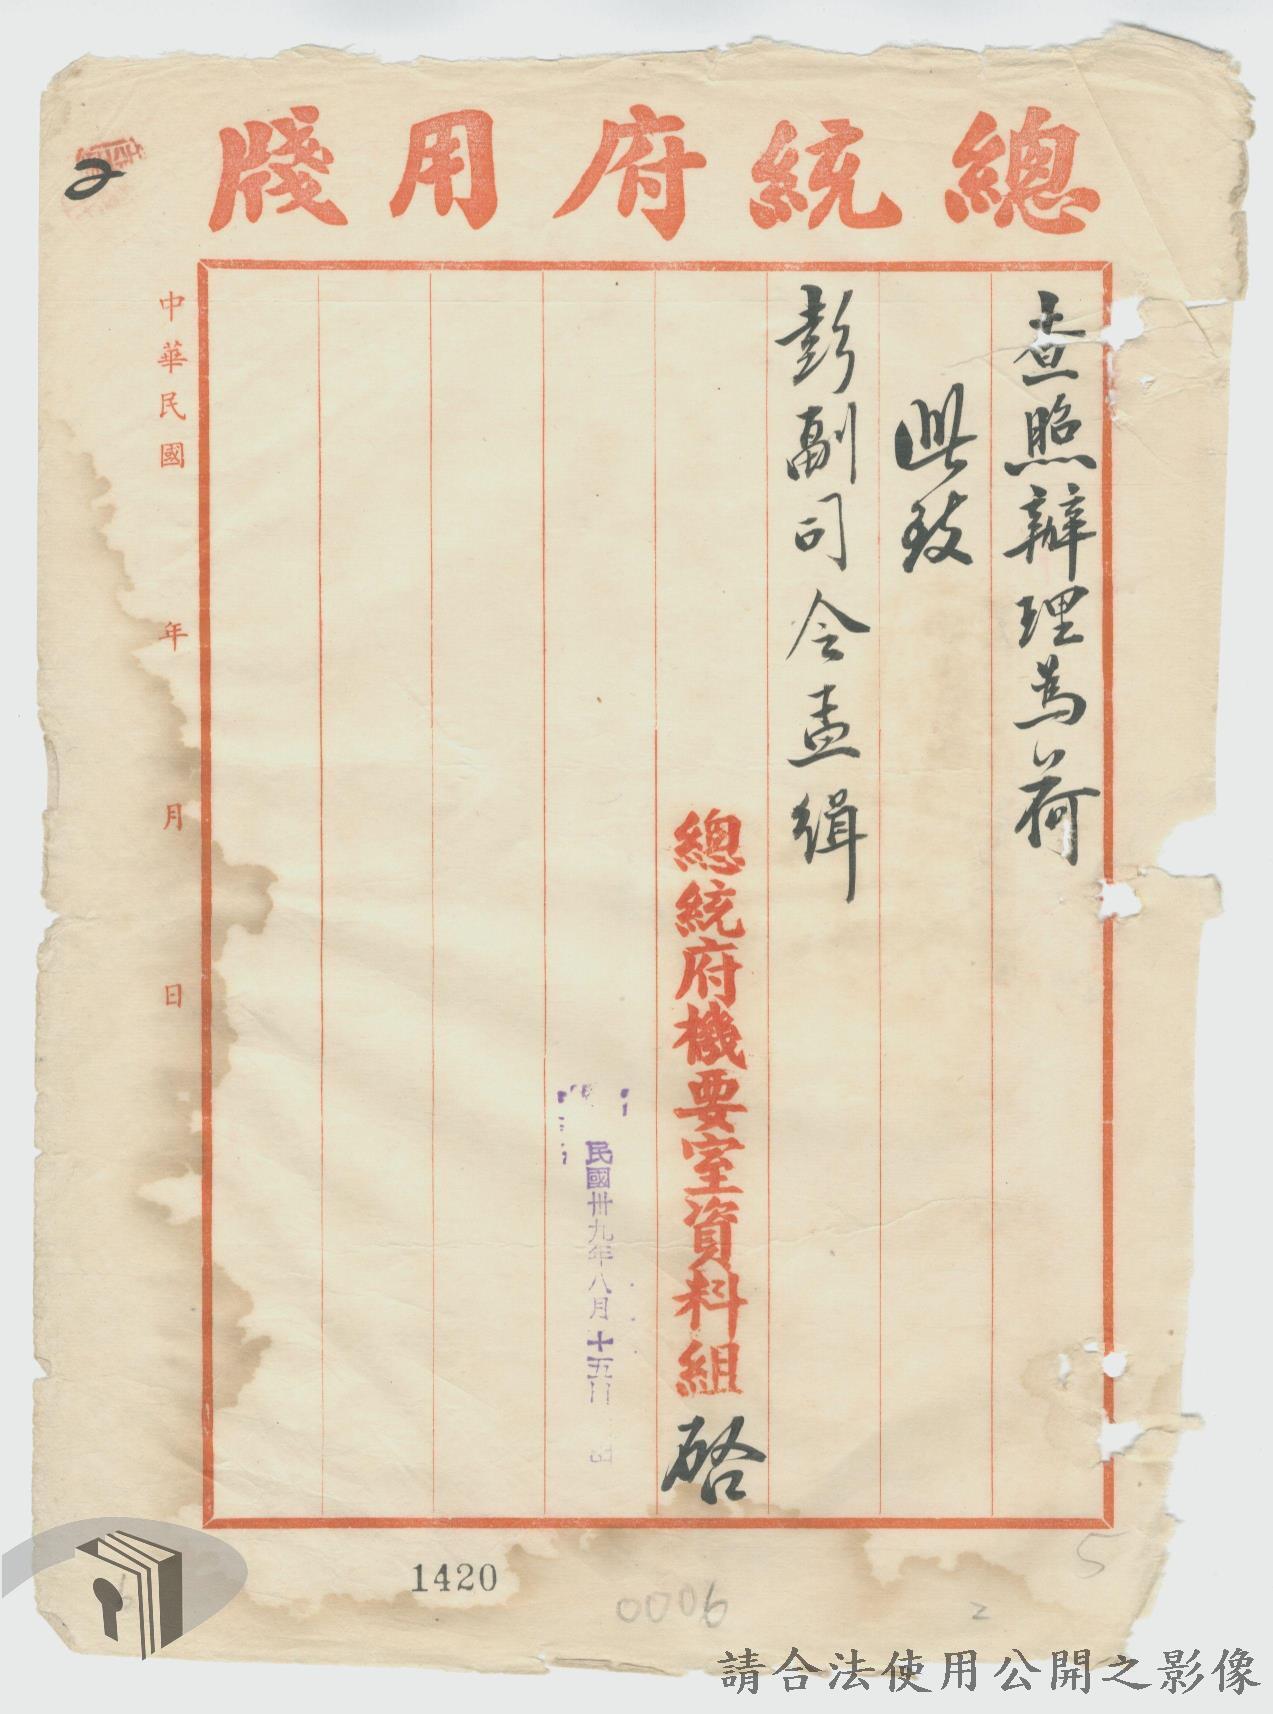 總統府用牋
查照辦理為荷
此致
彭副司令孟緝
總統府機要室資料組 啓
民國卅九年八月十五日
中華民國 年 月 日
2
1420
0006
2
5
請合法使用公開之影像